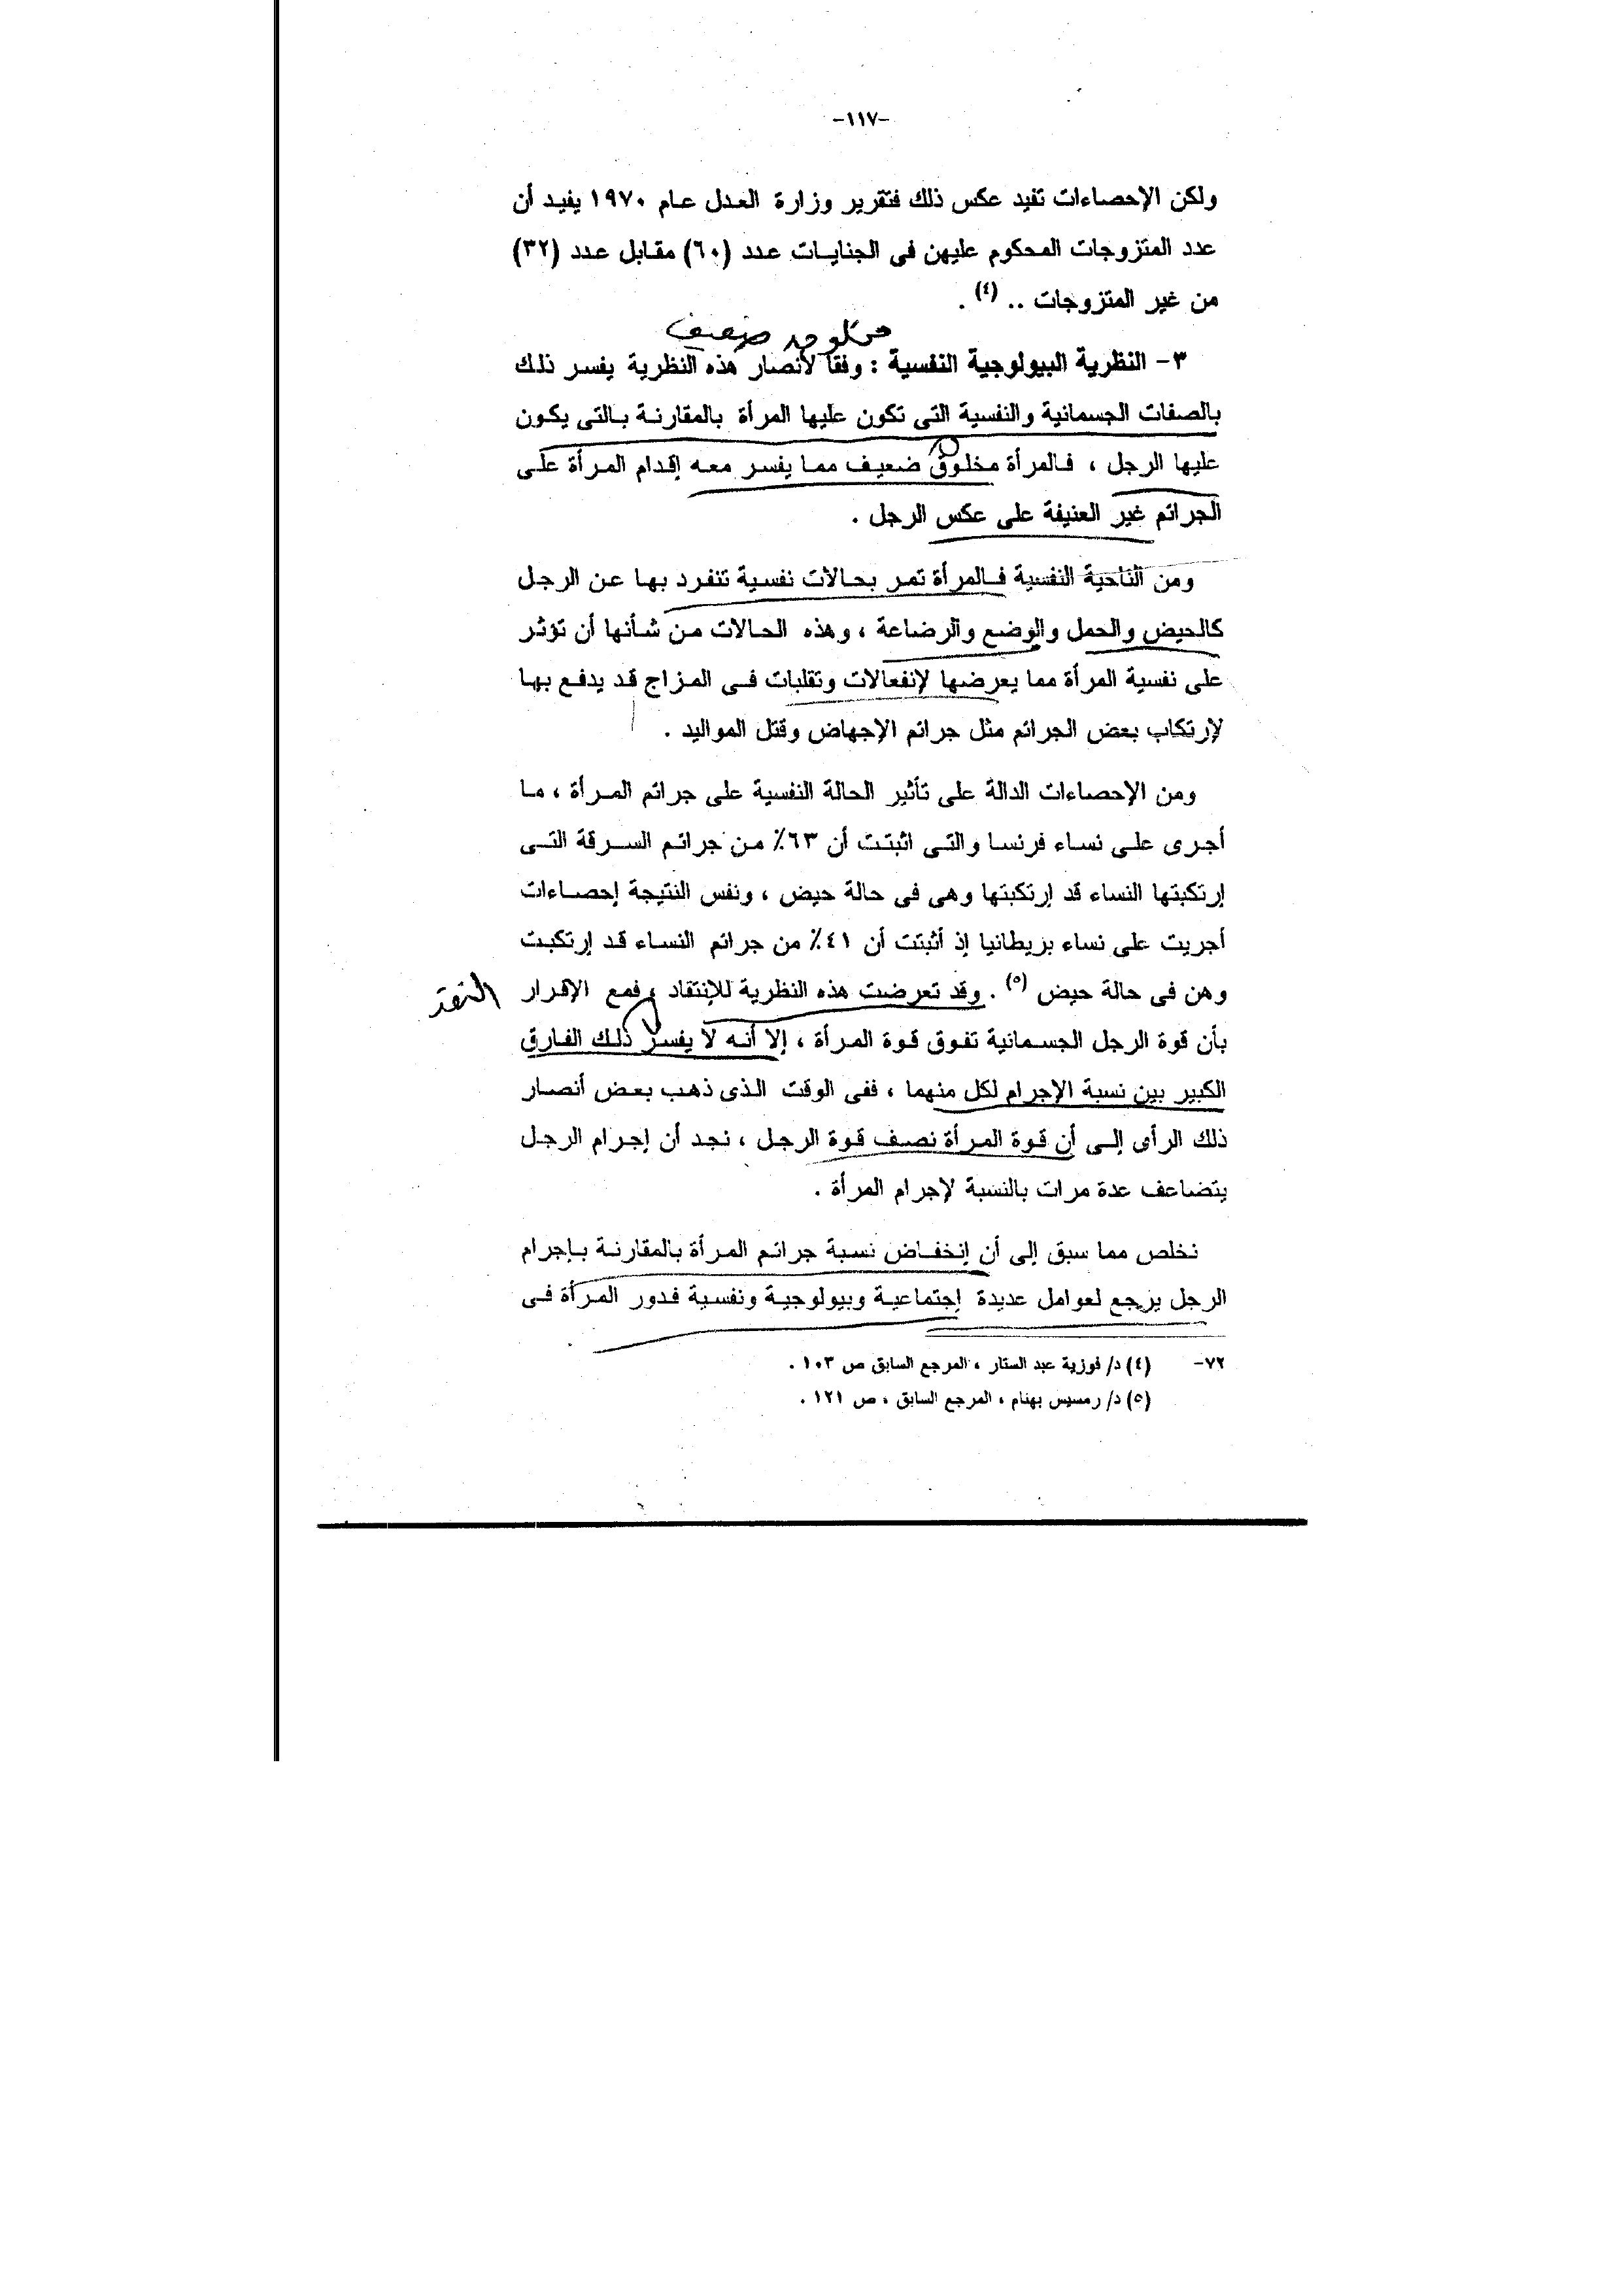 -١١٧-
ولكن الإحصاءات تفيد عكس ذلك فتقرير وزارة العدل عام ١٩٧٠ يفيد أن
عدد المتزوجات المحكوم عليهن فى الجنايات عدد (٦٠) مقابل عدد (٣٢)
من غير المتزوجات .. (٤) .
مخلوق ضعيف
٣- النظرية البيولوجية النفسية : وفقاً لأنصار هذه النظرية يفسر ذلك
بالصفات الجسمانية والنفسية التى تكون عليها المرأة بالمقارنة بالتى يكون
عليها الرجل ، فالمرأة مخلوق ضعيف مما يفسر معه إقدام المرأة على
الجرائم غير العنيفة على عكس الرجل .
ومن الناحية النفسية فالمرأة تمر بحالات نفسية تنفرد بها عن الرجل
كالحيض والحمل والوضع والرضاعة ، وهذه الحالات من شأنها أن تؤثر
على نفسية المرأة مما يعرضها لإنفعالات وتقلبات فى المزاج قد يدفع بها
لإرتكاب بعض الجرائم مثل جرائم الإجهاض وقتل المواليد .
ومن الإحصاءات الدالة على تأثير الحالة النفسية على جرائم المرأة ، ما
أجرى على نساء فرنسا والتى اثبتت أن ٦٣٪ من جرائم السرقة التى
إرتكبتها النساء قد إرتكبتها وهى فى حالة حيض ، ونفس النتيجة إحصاءات
أجريت على نساء بريطانيا إذ أثبتت أن ٤١٪ من جرائم النساء قد إرتكبت
وهن فى حالة حيض (٥) . وقد تعرضت هذه النظرية للإنتقاد ، فمع الإقرار
النقد
بأن قوة الرجل الجسمانية تفوق قوة المرأة ، إلا أنه لا يفسر ذلك الفارق
الكبير بين نسبة الإجرام لكل منهما ، ففى الوقت الذى ذهب بعض أنصار
ذلك الرأى إلى أن قوة المرأة نصف قوة الرجل ، نجد أن إجرام الرجل
يتضاعف عدة مرات بالنسبة لإجرام المرأة .
نخلص مما سبق إلى أن إنخفاض نسبة جرائم المرأة بالمقارنة بإجرام
الرجل يرجع لعوامل عديدة إجتماعية وبيولوجية ونفسية فدور المرأة فى
٧٢- (٤) د/ فوزية عبد الستار ، المرجع السابق ص ١٠٣ .
(٥) د/ رمسيس بهنام ، المرجع السابق ، ص ١٢١ .